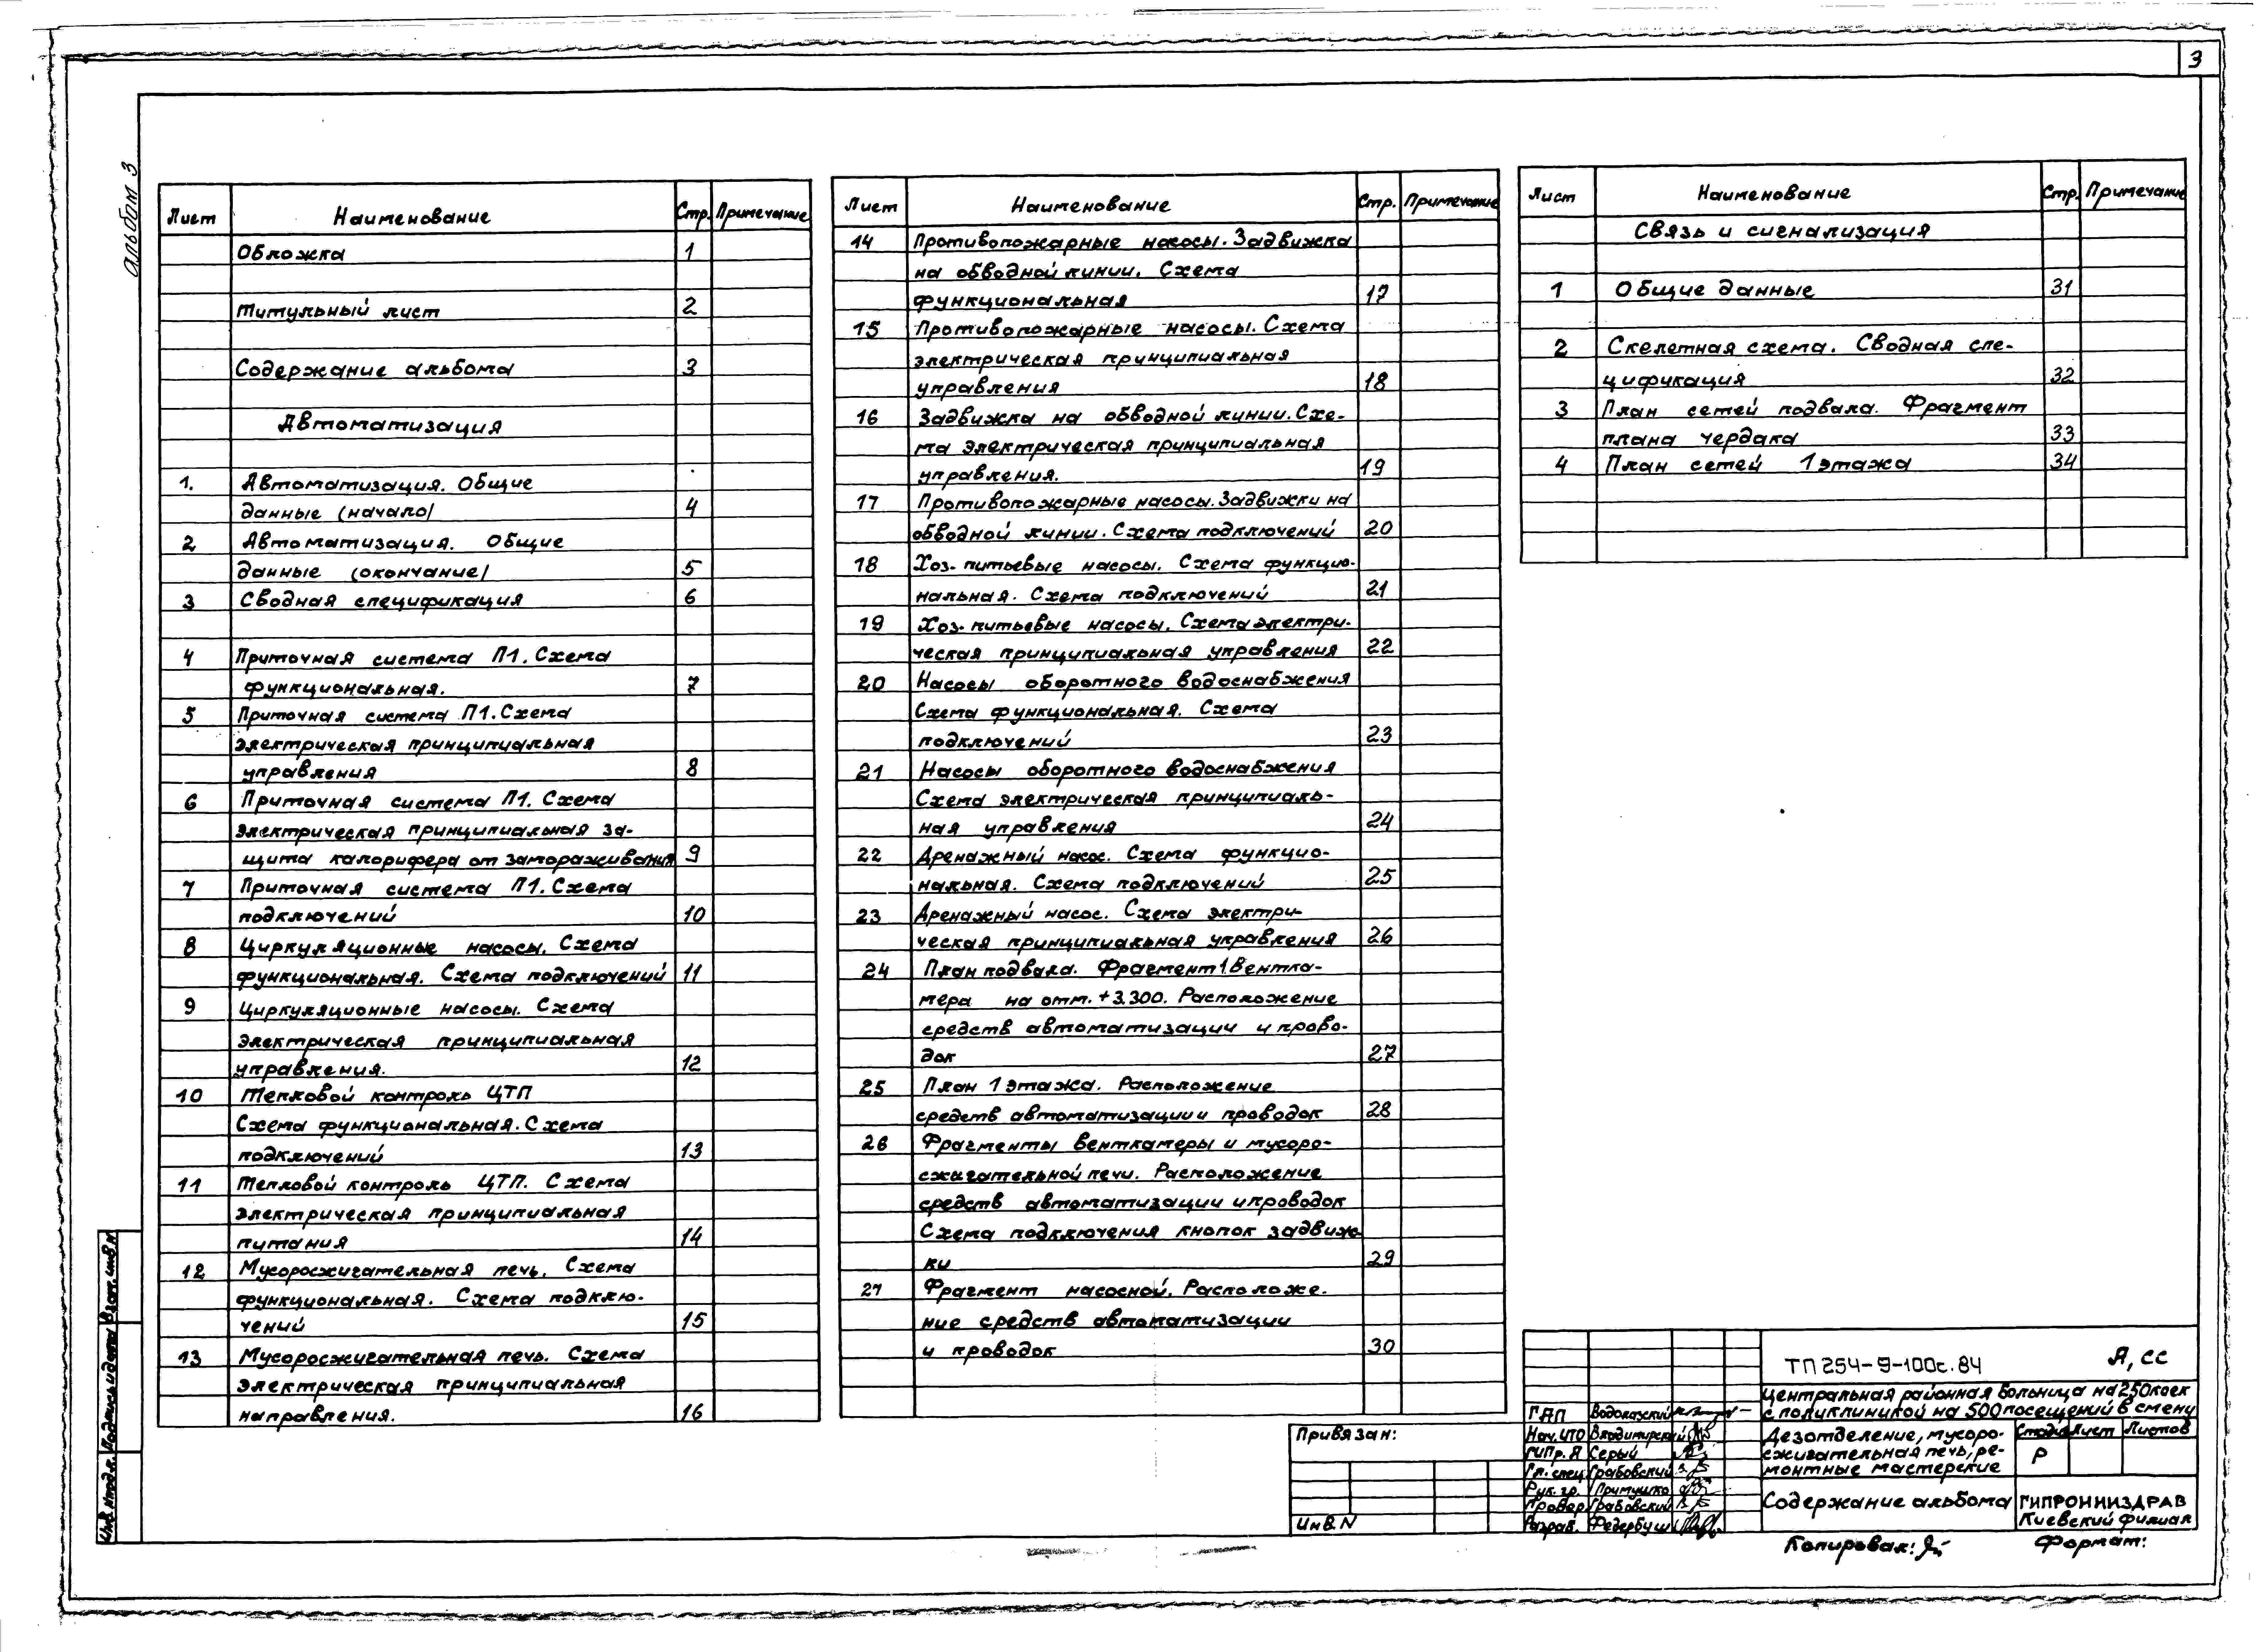 3
альбом 3
Лист Наименование Стр. Примечание
Обложка 1
Титульный лист 2
Содержание альбома 3
Автоматизация
1. Автоматизация. Общие
данные (начало) 4
2 Автоматизация. Общие
данные (окончание) 5
3 Сводная спецификация 6
4 Приточная система П1. Схема
функциональная. 7
5 Приточная система П1. Схема
электрическая принципиальная
управления 8
6 Приточная система П1. Схема
электрическая принципиальная за-
щита калорифера от замораживания 9
7 Приточная система П1. Схема
подключений 10
8 Циркуляционные насосы. Схема
функциональная. Схема подключений 11
9 Циркуляционные насосы. Схема
электрическая принципиальная
управления. 12
10 Тепловой контроль ЦТП
Схема функциональная. Схема
подключений 13
11 Тепловой контроль ЦТП. Схема
электрическая принципиальная
питания 14
12 Мусоросжигательная печь. Схема
функциональная. Схема подклю-
чений 15
13 Мусоросжигательная печь. Схема
электрическая принципиальная
направления. 16
Лист Наименование Стр. Примечание
14 Противопожарные насосы. Задвижка
на обводной линии. Схема
функциональная 17
15 Противопожарные насосы. Схема
электрическая принципиальная
управления 18
16 Задвижка на обводной линии. Схе-
ма электрическая принципиальная
управления. 19
17 Противопожарные насосы. Задвижки на
обводной линии. Схема подключений 20
18 Хоз-питьевые насосы. Схема функцио-
нальная. Схема подключений 21
19 Хоз-питьевые насосы. Схема электри-
ческая принципиальная управления 22
20 Насосы оборотного водоснабжения
Схема функциональная. Схема
подключений 23
21 Насосы оборотного водоснабжения
Схема электрическая принципиаль-
ная управления 24
22 Дренажный насос. Схема функцио-
нальная. Схема подключений 25
23 Дренажный насос. Схема электри-
ческая принципиальная управления 26
24 План подвала. Фрагмент 1. Вентка-
мера на отм. +3.300. Расположение
средств автоматизации и прово-
док 27
25 План 1 этажа. Расположение
средств автоматизации и проводок 28
26 Фрагменты венткамеры и мусоро-
сжигательной печи. Расположение
средств автоматизации и проводок
Схема подключения кнопок задвиж
ки 29
27 Фрагмент насосной. Расположе-
ние средств автоматизации
и проводок 30
Лист Наименование Стр. Примечание
Связь и сигнализация
1 Общие данные 31
2 Скелетная схема. Сводная спе-
цификация 32
3 План сетей подвала. Фрагмент
плана чердака 33
4 План сетей 1 этажа 34
Инв. N подл. Подпись и дата Взам. инв. N
Привязан:
Инв. N
ГАП Водолазский
Нач. ИТО Владимирский
ГИПр. А Серый
Гл. спец Грабовский
Рук. гр. Примушко
Провер Грабовский
Разраб. Федербуш
ТП 254-9-100с.84 А, СС
Центральная районная больница на 250 коек
с поликлиникой на 500 посещений в смену
Дезотделение, мусоро-
сжигательная печь, ре-
монтные мастерские
Стадия Лист Листов
Р
Содержание альбома
ГИПРОНИИЗДРАВ
Киевский филиал
Копировал:
Формат: